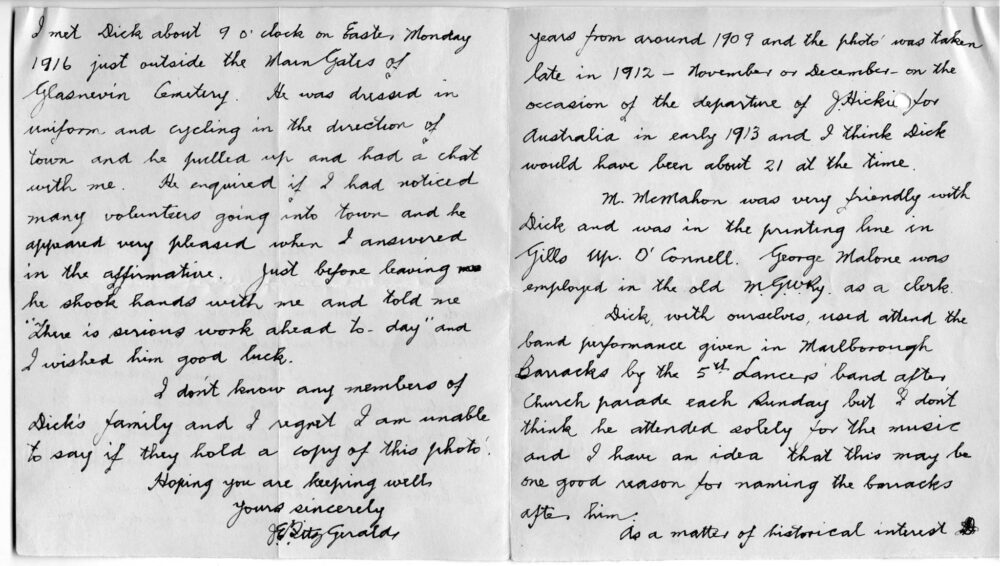 I met Dick about 9 o'clock on Easter Monday
1916 just outside the Main Gates of
Glasnevin Cemetery. He was dressed in
uniform and cycling in the direction of
town and he pulled up and had a chat
with me. He enquired if I had noticed
many volunteers going into town and he
appeared very pleased when I answered
in the affirmative. Just before leaving
he shook hands with me and told me
"There is serious work ahead to-day" and
I wished him good luck.
I don't know any members of
Dick's family and I regret I am unable
to say if they hold a copy of this photo'.
Hoping you are keeping well
Yours sincerely
J.E. FitzGerald
years from around 1909 and the photo' was taken
late in 1912 - November or December - on the
occasion of the departure of J. Hickie for
Australia in early 1913 and I think Dick
would have been about 21 at the time.
M. McMahon was very friendly with
Dick and was in the printing line in
Gills Up. O'Connell. George Malone was
employed in the old M.G.W.Ry. as a clerk.
Dick, with ourselves, used attend the
band performance given in Marlborough
Barracks by the 5th Lancers' band after
Church parade each Sunday but I don't
think he attended solely for the music
and I have an idea that this may be
one good reason for naming the barracks
after him.
As a matter of historical interest